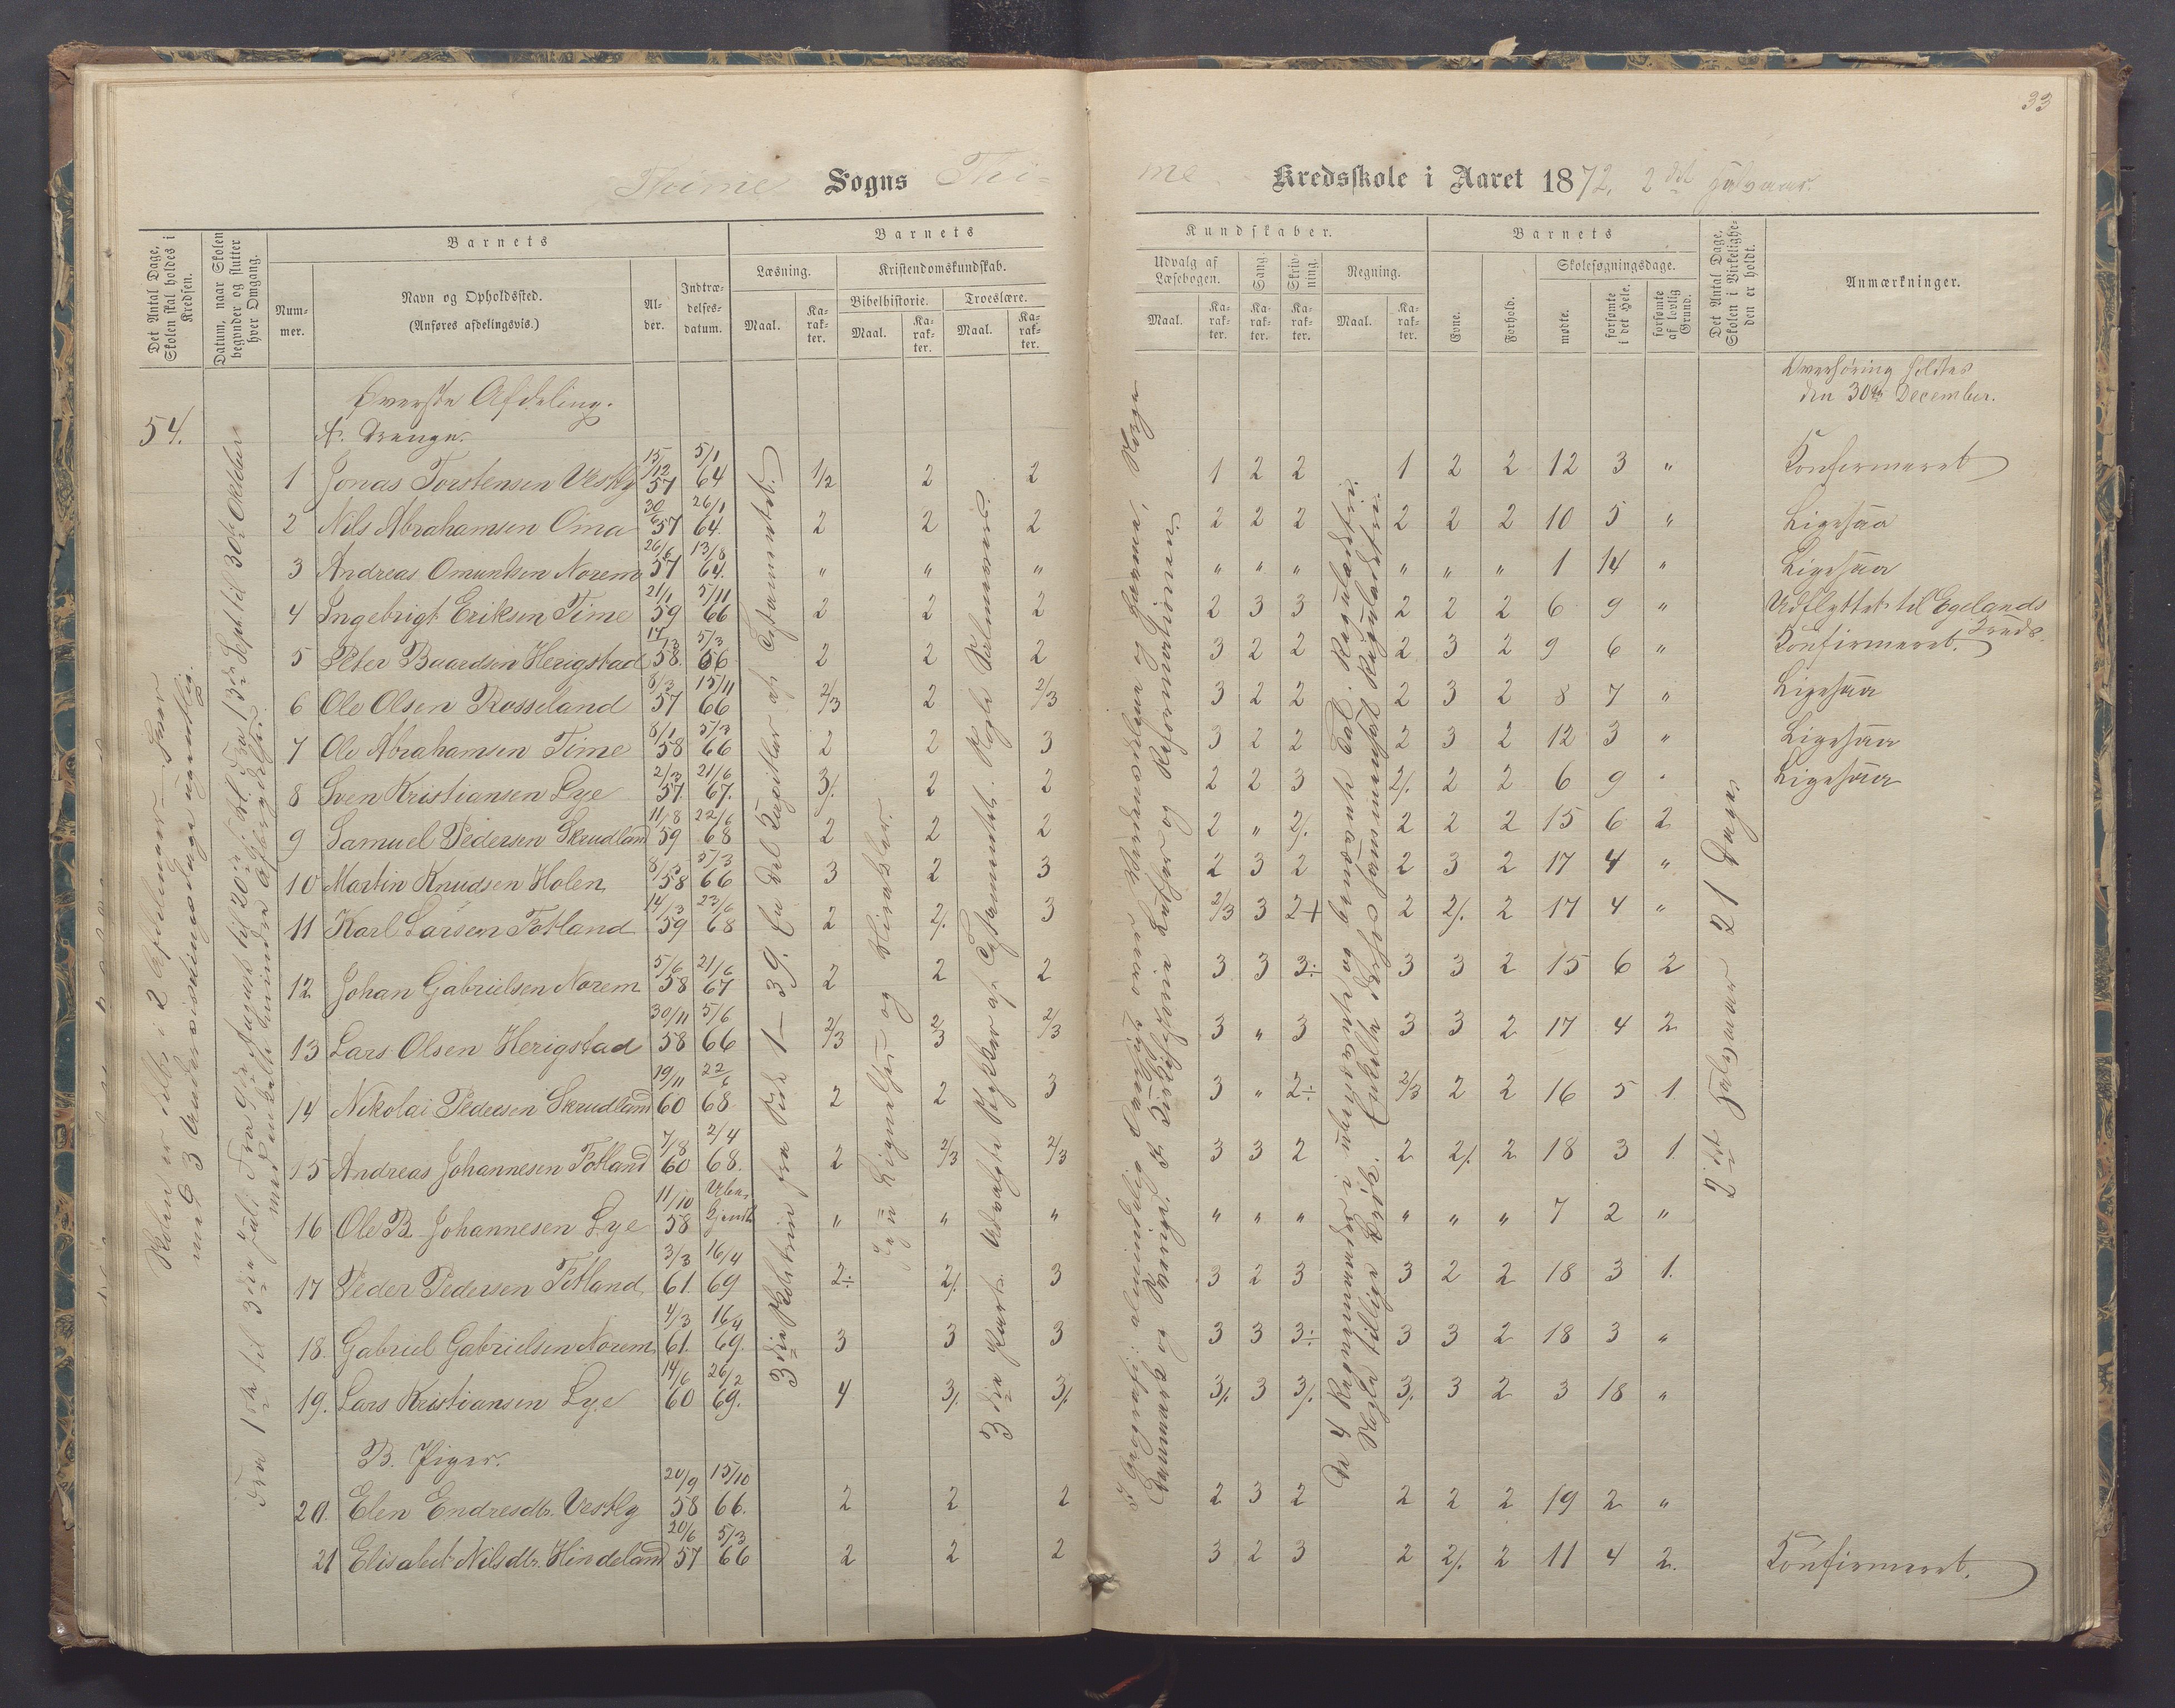 33
Thime Sogns Thi-
me Kredsskole i Aaret 1872, 2det Halvaar.
Det Antal Dage, Skolen skal holdes i Kredsen.
Datum, naar Skolen begynder og slutter hver Omgang.
Barnets
Num-mer.
Navn og Opholdssted.
(Anføres afdelingsvis.)
Al-der.
Indtræ-delses-datum.
Barnets
Læsning.
Kristendomskundskab.
Bibelhistorie.
Troeslære.
Maal.
Ka-rak-ter.
Maal.
Ka-rak-ter.
Maal.
Ka-rak-ter.
Kundskaber.
Udvalg af Læsebogen.
Sang.
Skriv-ning.
Regning.
Maal.
Ka-rak-ter.
Ka-rak-ter.
Ka-rak-ter.
Maal.
Ka-rak-ter.
Barnets
Evne.
Forhold.
Skolesøgningsdage.
mødte.
forsømte i det Hele.
forsømte af lovlig Grund.
Det Antal Dage, Skolen i Virkelighe-den er holdt.
Anmærkninger.
Overhøring holdtes
den 30te December.
54.
Øverste Afdeling.
A. Drenge.
1 Jonas Torstensen Vestly 15/12 57 5/1 64 1/2 2 2 1 2 2 1 2 2 12 3 " Konfirmeret
2 Nils Abrahamsen Oma 30/6 57 26/1 64. 2 2 2 2 2 2 2 2 2 10 5 " Ligesaa
3 Andreas Omundsen Norem 26/6 57 13/8 64. " " " " " " " " " 1 14 " Ligesaa
4 Ingebrigt Eriksen Time 21/1 59 5/11 66 2 2 2 2 3 3 2 2 2 6 9 " Udflyttet til Egelands Kreds.
5 Peter Baardsen Herigstad 58. 5/3 66 2 2 2 3 2 2 2 3 2 9 6 " Konfirmeret.
6 Ole Olsen Rosseland 8/3 57 15/11 66 2/3 2 2/3 3 2 2 2 3 2 8 7 " Ligesaa
7 Ole Abrahamsen Time 8/1 58 5/3 66 2 2 3 3 2 2 2 3 2 12 3 " Ligesaa
8 Sven Kristiansen Lye 2/3 57. 21/6 67. 3/. 2 2 2 2 3 2/. 2 2 6 9 " Ligesaa
9 Samuel Pedersen Skrudland 11/8 59 22/6 68 2 2 2 2 " 2/. 2 2 2 15 6 2
10 Martin Knudsen Holen 58 5/3 66 3 2 3 2 3 2 2 3 2 17 4 "
11 Karl Larsen Fotland 14/3 59 22/6 68 2 2/. 3 2/3 3 2+ 2 2/. 2 17 4 "
12 Johan Gabrielsen Norem 5/6 58 21/6 67 2 2 2 3 3 3÷ 3 3 2 15 6 2
13 Lars Olsen Herigstad 30/11 58 5/6 66 2/3 2/3 2/3 3 " 3 3 3 2 17 4 2
14 Nikolai Pedersen Skrudland 19/11 60 22/6 68 2 2 3 3 " 2÷ 2/3 2 2 16 5 1
15 Andreas Johannesen Fotland 7/8 60 2/4 68. 2 2/3 2/3 3 3 2 2 2/. 2 18 3 1.
16 Ole B. Johannesen Lye 11/10 58 " " " " " " " " " 7 2 "
17 Peder Pedersen Fotland 3/3 61. 16/4 69 2÷ 2/. 3 3 2 3 3 2 2 18 3 1.
18. Gabriel Gabrielsen Norem 4/3 61. 16/4 69. 3 3 3 3 3 3÷ 3 3 2 18 3 "
19. Lars Kristiansen Lye 14/6 60 26/2 69. 4 3/. 3/. 3/. 3 3/. 3/. 3 2 3 18 "
B. Piger.
20. Elen Endresdtr. Vestly 20/9 58 15/10 66. 2 2 2 2 3 2 2 2 2 19 2 "
21 Elisabet Nilsdtr. Hindeland 20/6 57 5/3 66 2 2 2 3 2 3 2 2/. 2 11 4 2. Konfirmeret.
Skolen er delt i 2 Afdelinger - hver
med 3 Undervisningsdage ugentlig.
Fra 1ste til 3die Juli. Fra 9de August til 20de s. M. Fra 13de Sept. til 30te Oktober
med enkelte mindre Afbrydelser.
3die Skoletrin fra Side 1-39. En Del Kapitler af Testamentet.
og Mirakler.
3die Part. Udvalgte Stykker af Testamentet. Nogle Salmevers.
De 4 Regningsarter
2det Halvaar 21 Dage